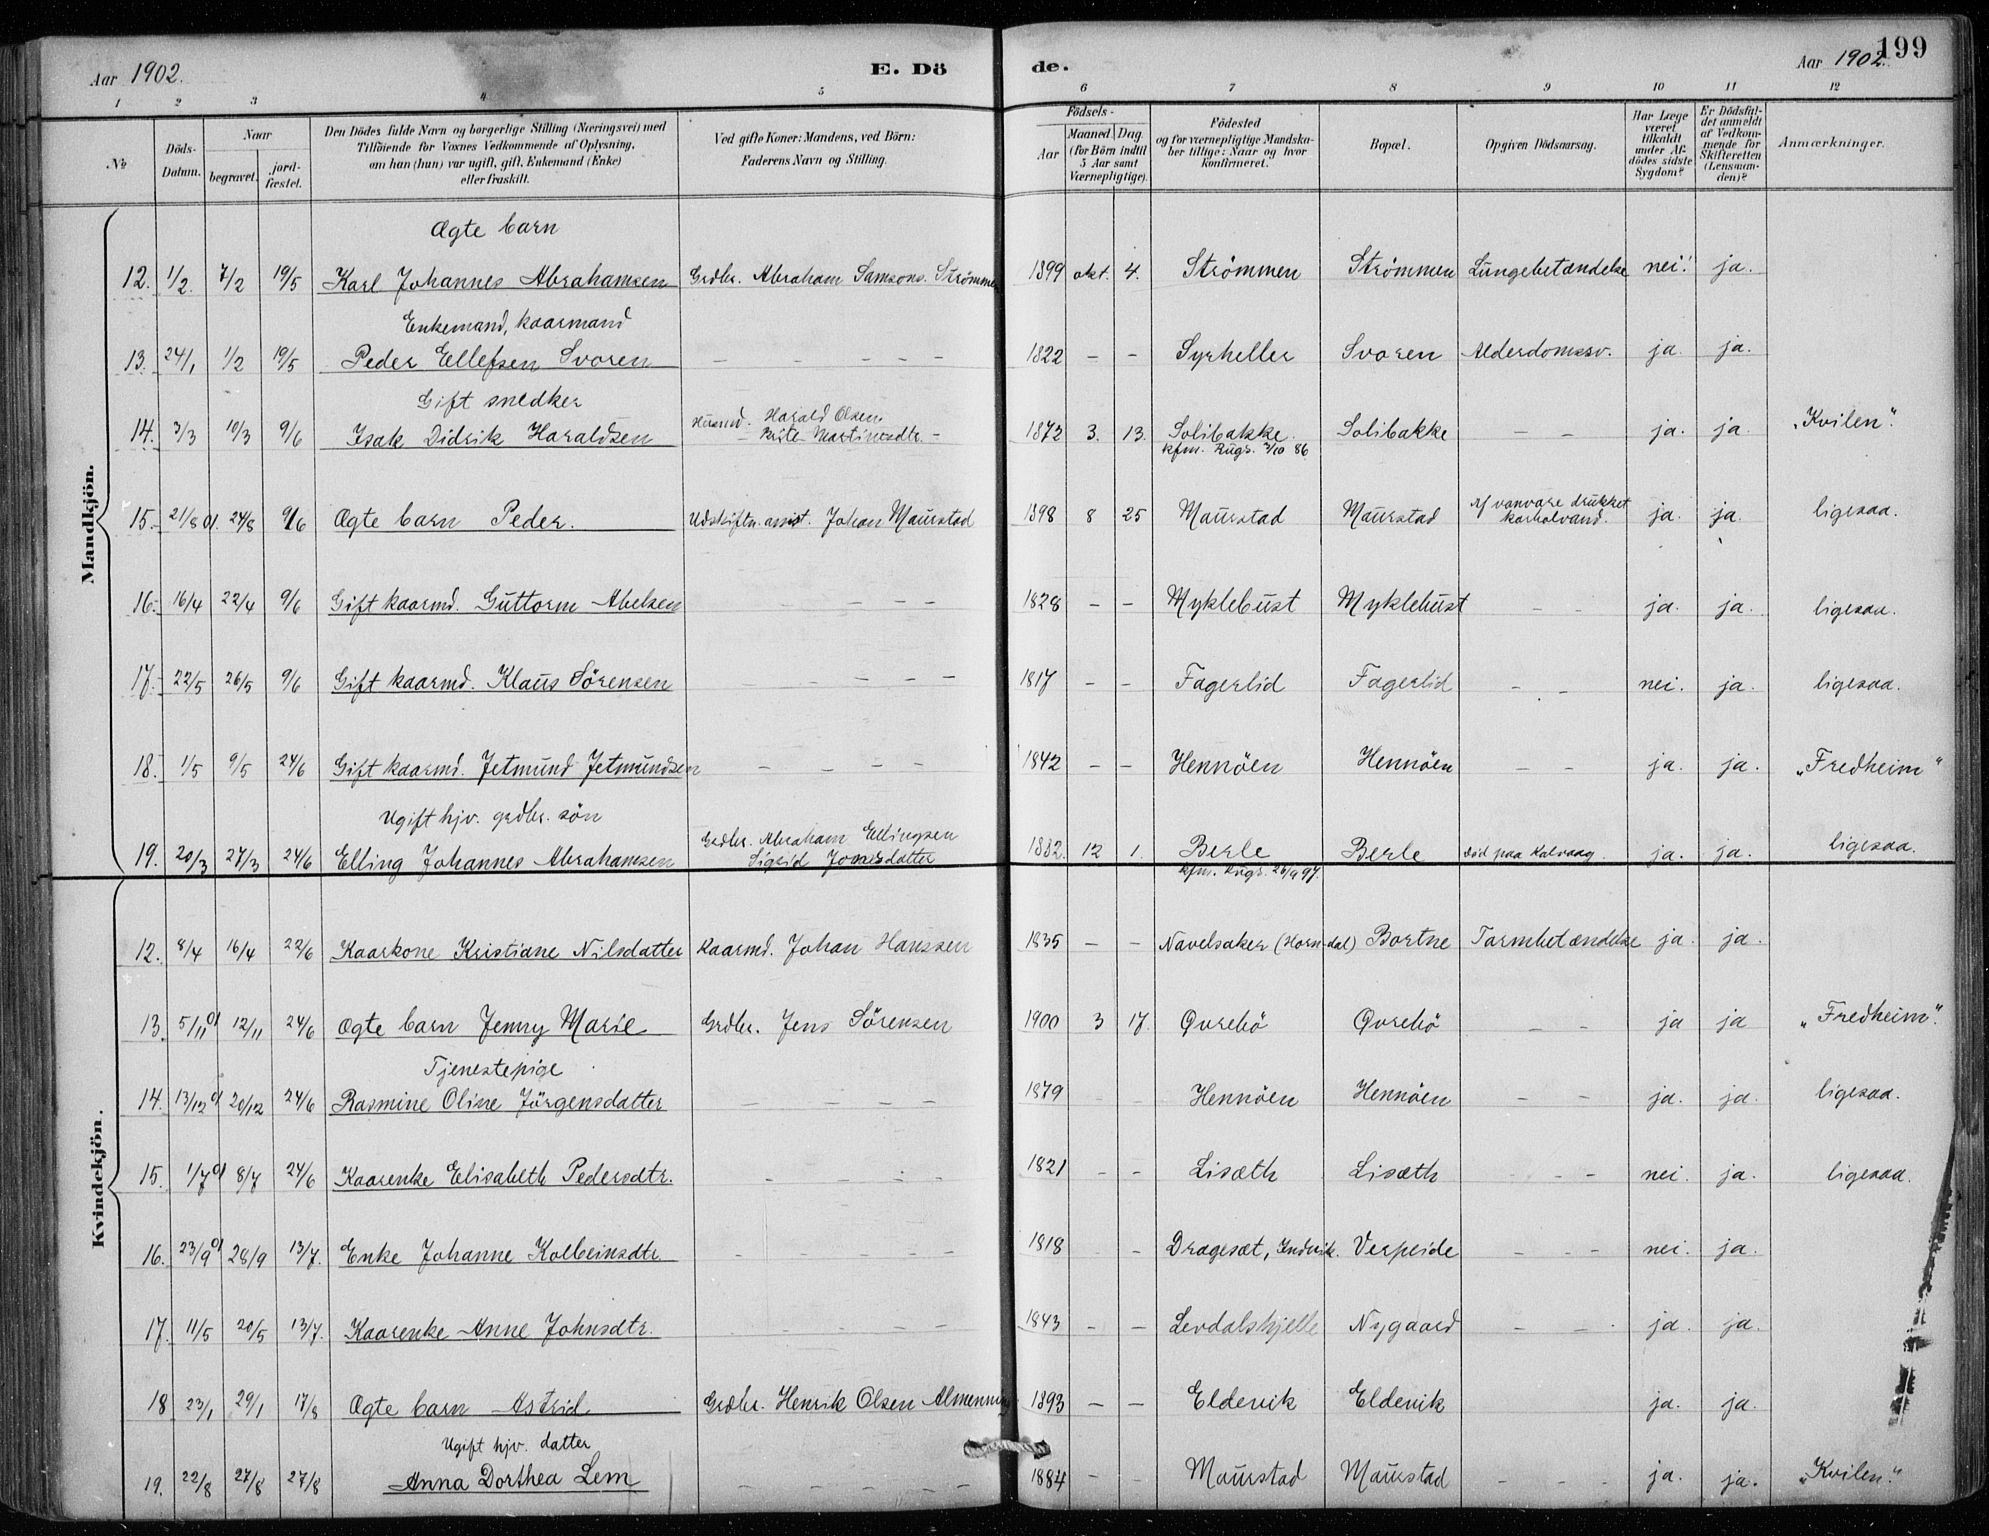 Aar 1902.
E. Dö
de.
Aar 1902.
199
1 2 3 4 5 6 7 8 9 10 11 12
No
Döds-Datum.
Naar
begravet.
jord-fæstet.
Den Dödes fulde Navn og borgerlige Stilling (Næringsvei) med
Tilföiende for Voxnes Vedkommende af Oplysning,
om han (hun) var ugift, gift, Enkemand (Enke)
eller fraskilt.
Ved gifte Koner: Mandens, ved Börn:
Faderens Navn og Stilling.
Födsels-
Aar
Maaned. Dag.
(for Börn indtil
5 Aar samt
Værnepligtige).
Födested
og for værnepligtige Mandska-
ber tillige: Naar og hvor
konfirmeret.
Bopæl.
Opgiven Dödsaarsag.
Har Læge
været
tilkaldt
under Af-
dödes sidste
Sygdom?
Er Dödsfal-
det anmeldt
af Vedkom-
mende for
Skifteretten
(Lensman-
den)?
Anmærkninger.
Mandkjön.
Ægte barn
12. 1/2 7/2 19/5 Karl Johannes Abrahamsen Grdbr. Abraham Samsons. Strömmen 1899 okt. 4. Strömmen Strömmen Lungebetændelse nei! ja.
Enkemand, kaarmand
13. 24/1 1/2 19/5 Peder Ellefsen Svoren — — — — — 1822 — — Syrheller Svoren Alderdomssv. ja. ja.
Gift snedker
14. 3/3 10/3 9/6 Isak Didrik Haraldsen Husmd. Harald Olsen 1872 3. 13. Solibakke Solibakke — — ja. ja. „Kvilen“.
Brite Martinusdtr. kfm. Rugs. 3/10 86
15. 21/8 01. 24/8 9/6 Ægte barn Peder. Udskiftn. assist. Johan Maurstad 1898 8 25 Maurstad Maurstad Af vanvare drukket ja. ja. ligesaa.
karbolvand.
16. 16/4 22/4 9/6 Gift kaarmd. Guttorm Abelsen — — — 1828 — — Myklebust Myklebust — — ja. ja. ligesaa.
17. 22/5 26/5 9/6 Gift kaarmd. Klaus Sörensen — — — — — 1817 — — Fagerlid Fagerlid — — nei. ja. ligesaa.
18. 1/5 9/5 24/6 Gift kaarmd. Jetmund Jetmundsen — — — — 1842 — — Hennöen Hennöen — — ja. ja. „Fredheim“
Ugift hjv. grdbr. sön
19. 20/3 27/3 24/6 Elling Johannes Abrahamsen Grdbr. Abraham Ellingsen 1882. 12 1. Berle Berle död paa Kalvaag. ja. ja. ligesaa.
Sigrid Jonesdatter kfm. Rugs. 26/9 97.
Kvindekjön.
12. 8/4 16/4 22/6 Kaarkone Kristiane Nilsdatter Kaarmd. Johan Hanssen 1835 — — Navelsaker (Horndal) Bortne Tarmbetændelse ja. ja.
13. 5/11 01 12/11 24/6 Ægte barn Jenny Marie Grdbr. Jens Sörensen 1900 3 17. Øvrebö Øvrebö — — ja ja „Fredheim“.
Tjenestepige
14. 13/12 01 20/12 24/6 Rasmine Oline Jörgensdatter — — — — 1879 — — Hennöen Hennöen — — ja. ja. ligesaa.
15. 1/7 01 8/7 24/6 Kaarenke Elisabeth Pedersdtr. - - - - 1821 - - Lisæth Lisæth - - - nei. ja. ligesaa.
16. 23/9 01 28/9 13/7. Enke Johanne Kolbeinsdtr. — — — — — 1818 - Dragesæt, Indvik. Verpeide — — — nei. ja.
17. 11/5 20/5 13/7. Kaarenke Anne Johnsdtr. — — — — — 1843 — — Levdalshjelle Nygaard — — ja. ja.
18 23/1 29/1 17/8 Ægte barn Astrid Grdbr. Henrik Olsen Almenning 1893 — — Eldevik Eldevik ja. ja.
Ugift hjv. datter
19. 22/8 27/8 27/8 Anna Dorthea Lem — — — — — 1884 - - Maurstad Maurstad - - - ja. ja. „Kvilen“.